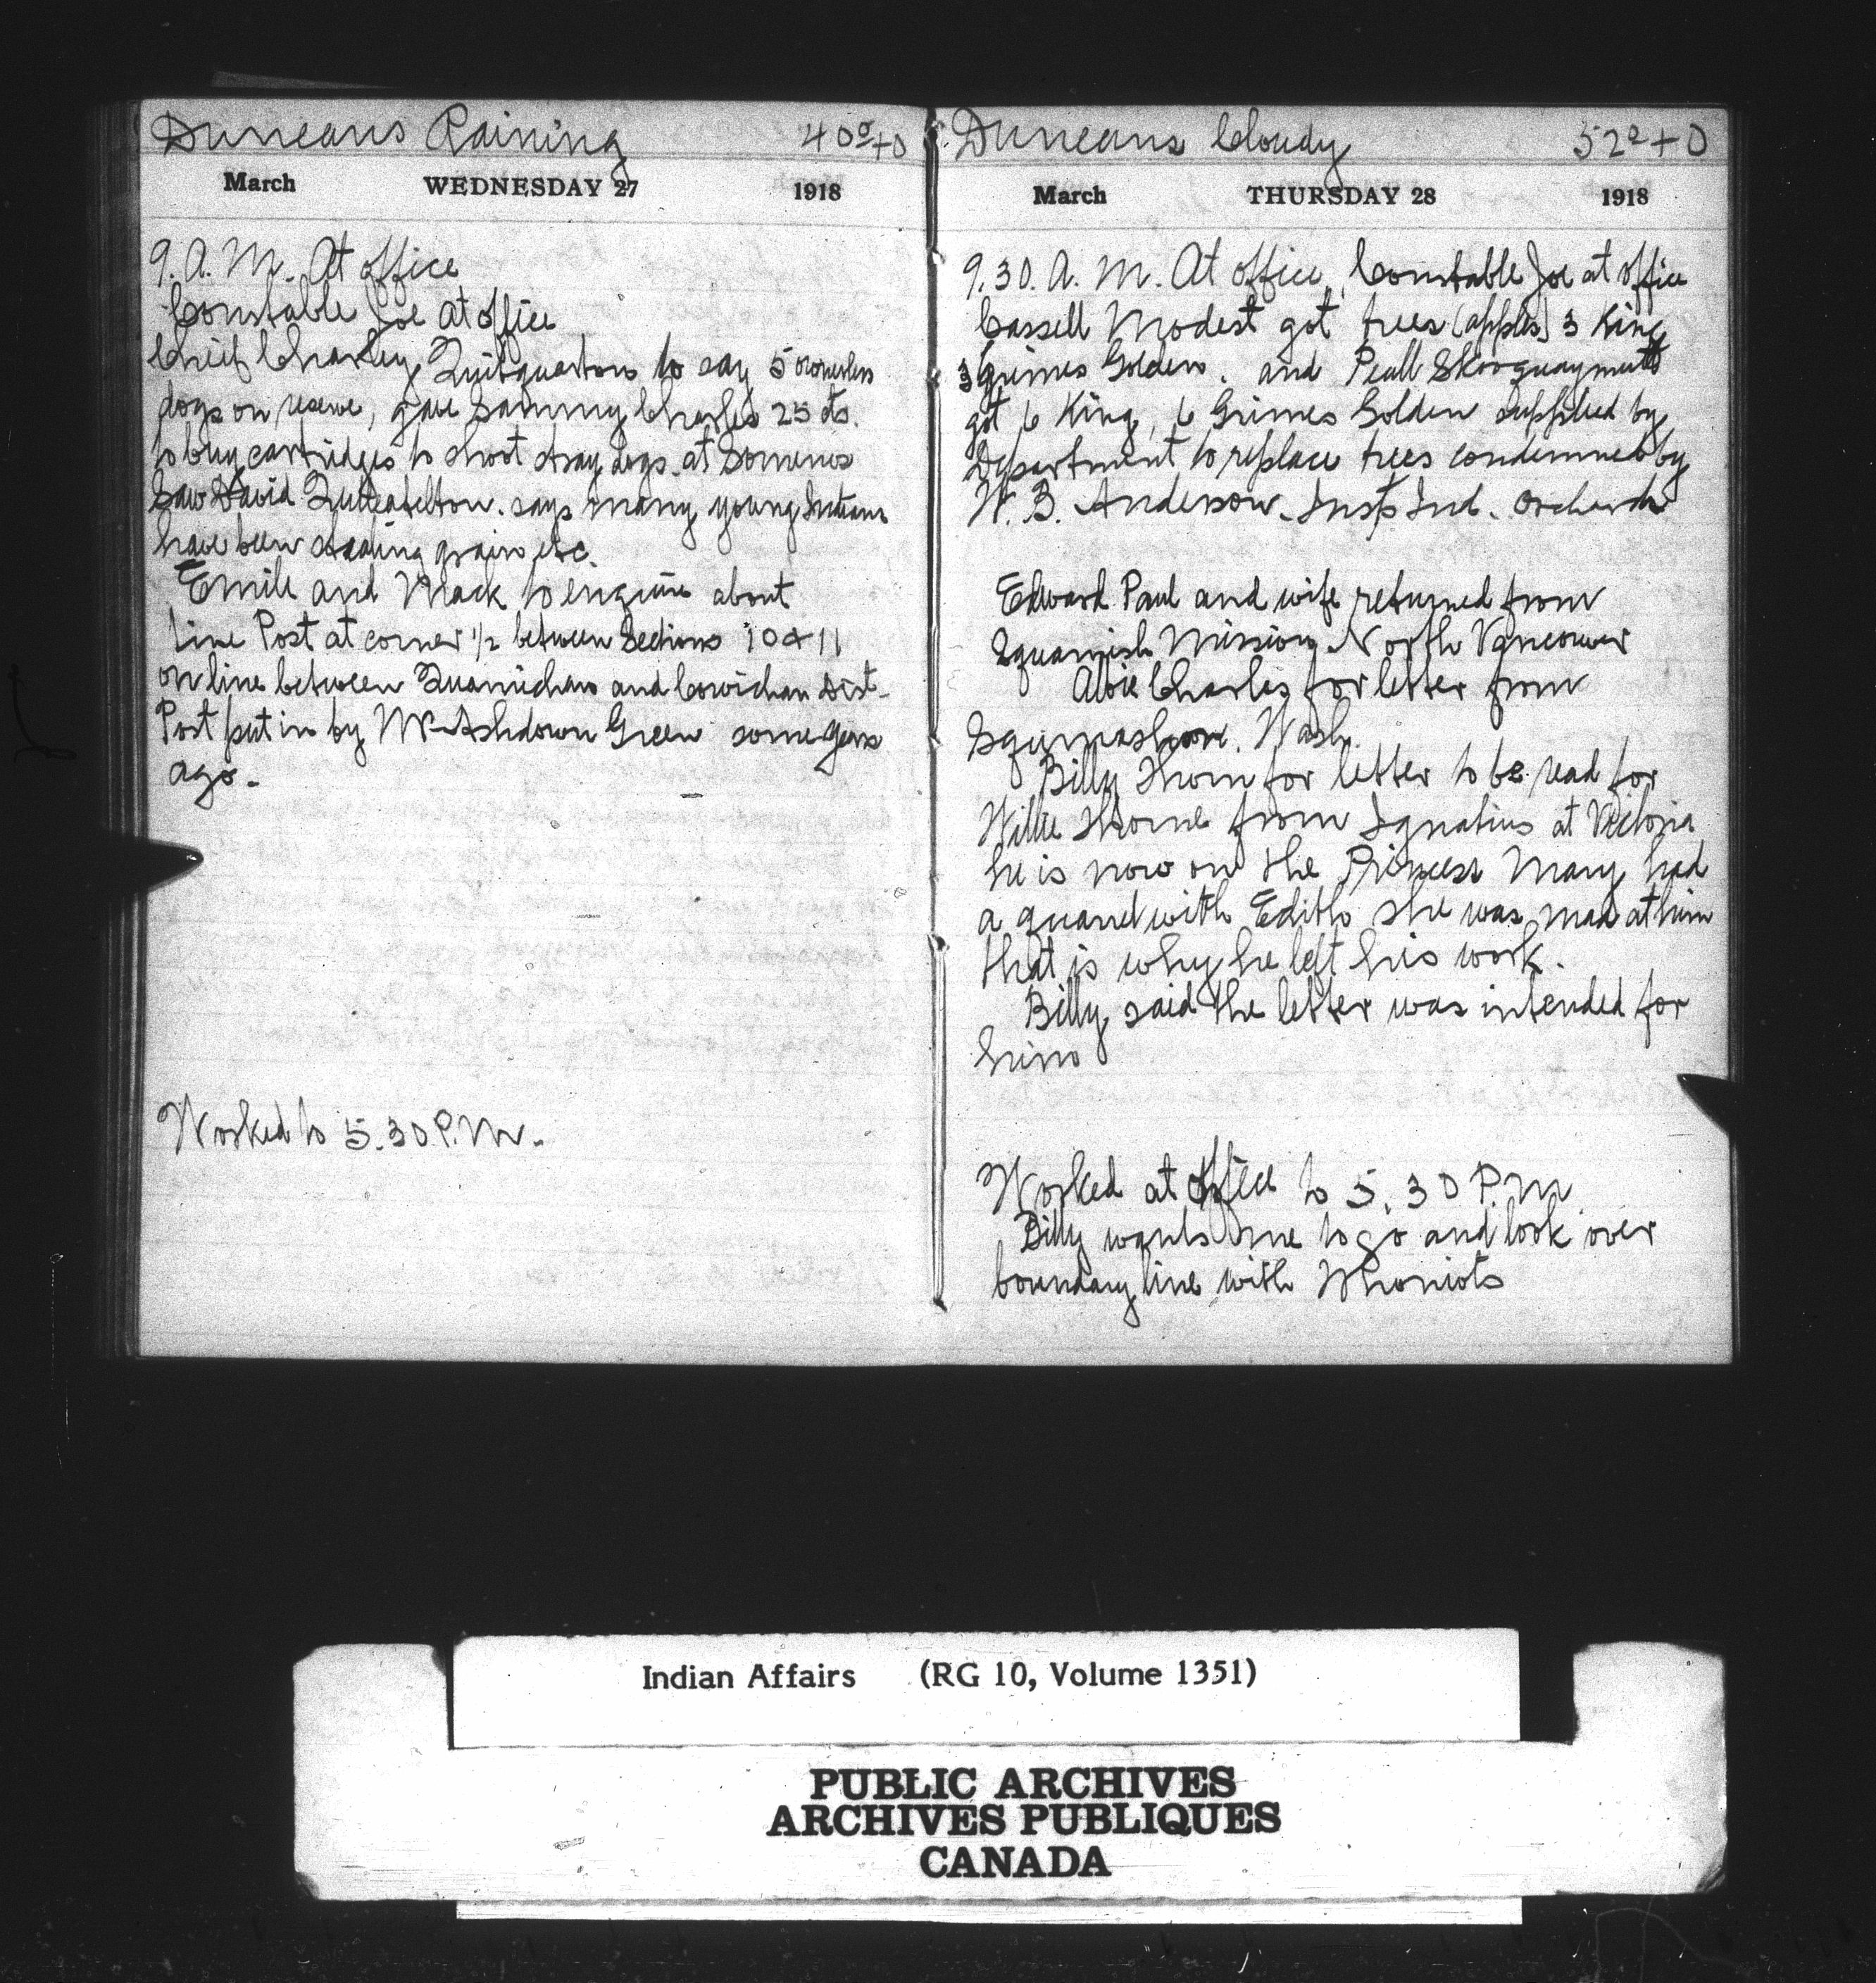 Duncans Raining 40°+0
March WEDNESDAY 27 1918
9. A. M. At office
Constable Joe at office
Chief Charley to say 5 ownerless
dogs on reserve, gave Sammy Charles 25 cts.
to buy cartridges to shoot stray dogs at Somenos
Saw David says many young Indians
have been stealing grain etc.
Emile and Mack to enquire about
line Post at corner 1/2 between Sections 10 & 11
on line between Quamichan and Cowichan Dist.
Post put in by Mr Ashdown Green some years
ago.
Worked to 5.30 P.M.
Duncans Cloudy 52°+0
March THURSDAY 28 1918
9.30. A. M. At office, Constable Joe at office
Cassell Modest got trees (apples) 3 King
3 Grimes Golden, and
got 6 King, 6 Grimes Golden supplied by
Department to replace trees condemned by
W. B. Anderson. Insp Ind. Orchards
Edward Paul and wife returned from
Squamish Mission North Vancouver
Abie Charles for letter from
Wash.
Billy Thorn for letter to be read for
Willie Thorne from Ignatius at Victoria
he is now on the Princess Mary, had
a quarrel with Edith she was mad at him
that is why he left his work.
Billy said the letter was intended for
him
Worked at office to 5.30 P.M.
Billy wants me to go and look over
boundary line with
Indian Affairs (RG 10, Volume 1351)
PUBLIC ARCHIVES
ARCHIVES PUBLIQUES
CANADA